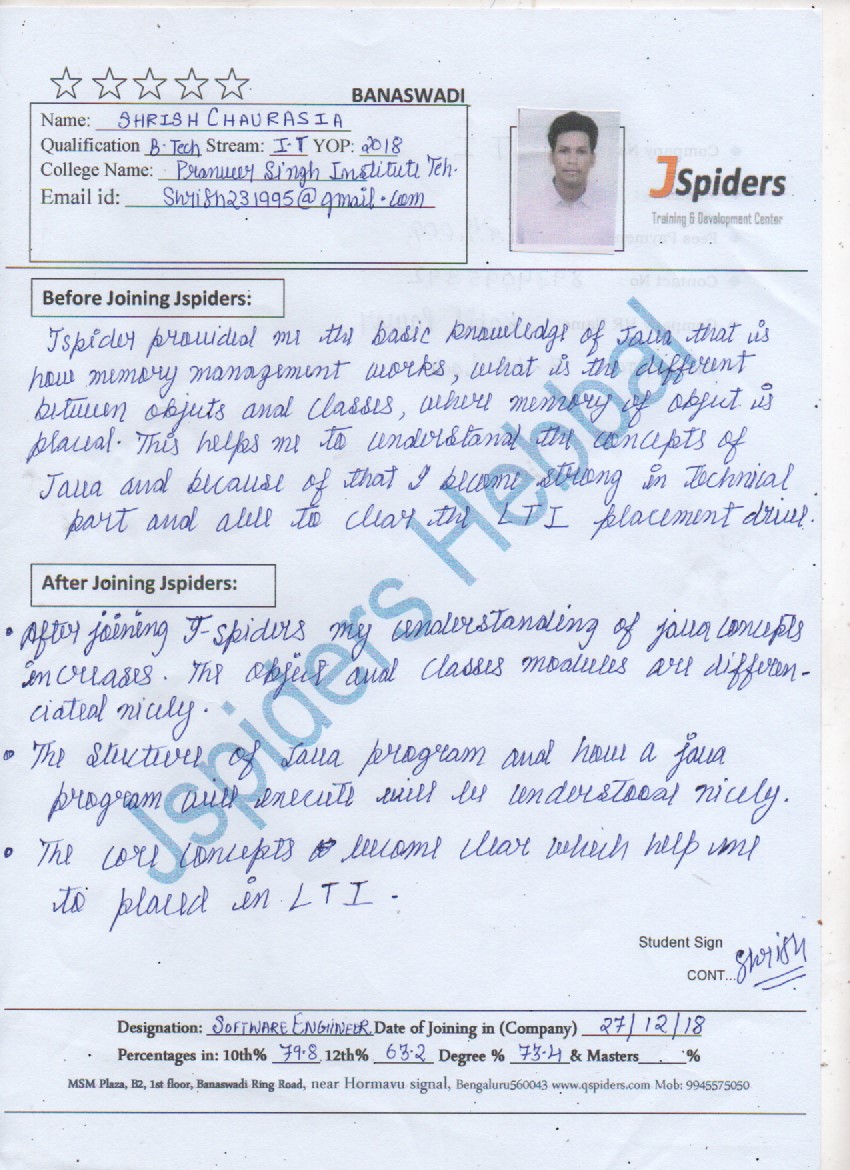 BANASWADI
Name: SHRISH CHAURASIA
Qualification B.Tech Stream: I.T YOP: 2018
College Name: Pranveer Singh Institute Teh.
Email id: Shrish231995@gmail.com
JSpiders
Training & Development Center
Before Joining Jspiders:
Jspider provided me the basic knowledge of Java that is
how memory management works, what is the different
between objects and classes, where memory of object is
placed. This helps me to understand the concepts of
Java and because of that I become strong in Technical
part and able to clear the LTI placement drive.
After Joining Jspiders:
• After joining J-spiders my understanding of java concepts
increases. The object and classes modules are differen-
ciated nicely.
• The structure of Java program and how a java
program will execute will be understood nicely.
• The core concepts become clear which help me
to placed in LTI.
Jspiders Hebbal
Student Sign
CONT... Shrish
Designation: SOFTWARE ENGIINEER Date of Joining in (Company) 27/12/18
Percentages in: 10th% 79.8 12th% 63.2 Degree % 73.4 & Masters %
MSM Plaza, B2, 1st floor, Banaswadi Ring Road, near Hormavu signal, Bengaluru560043 www.qspiders.com Mob: 9945575050